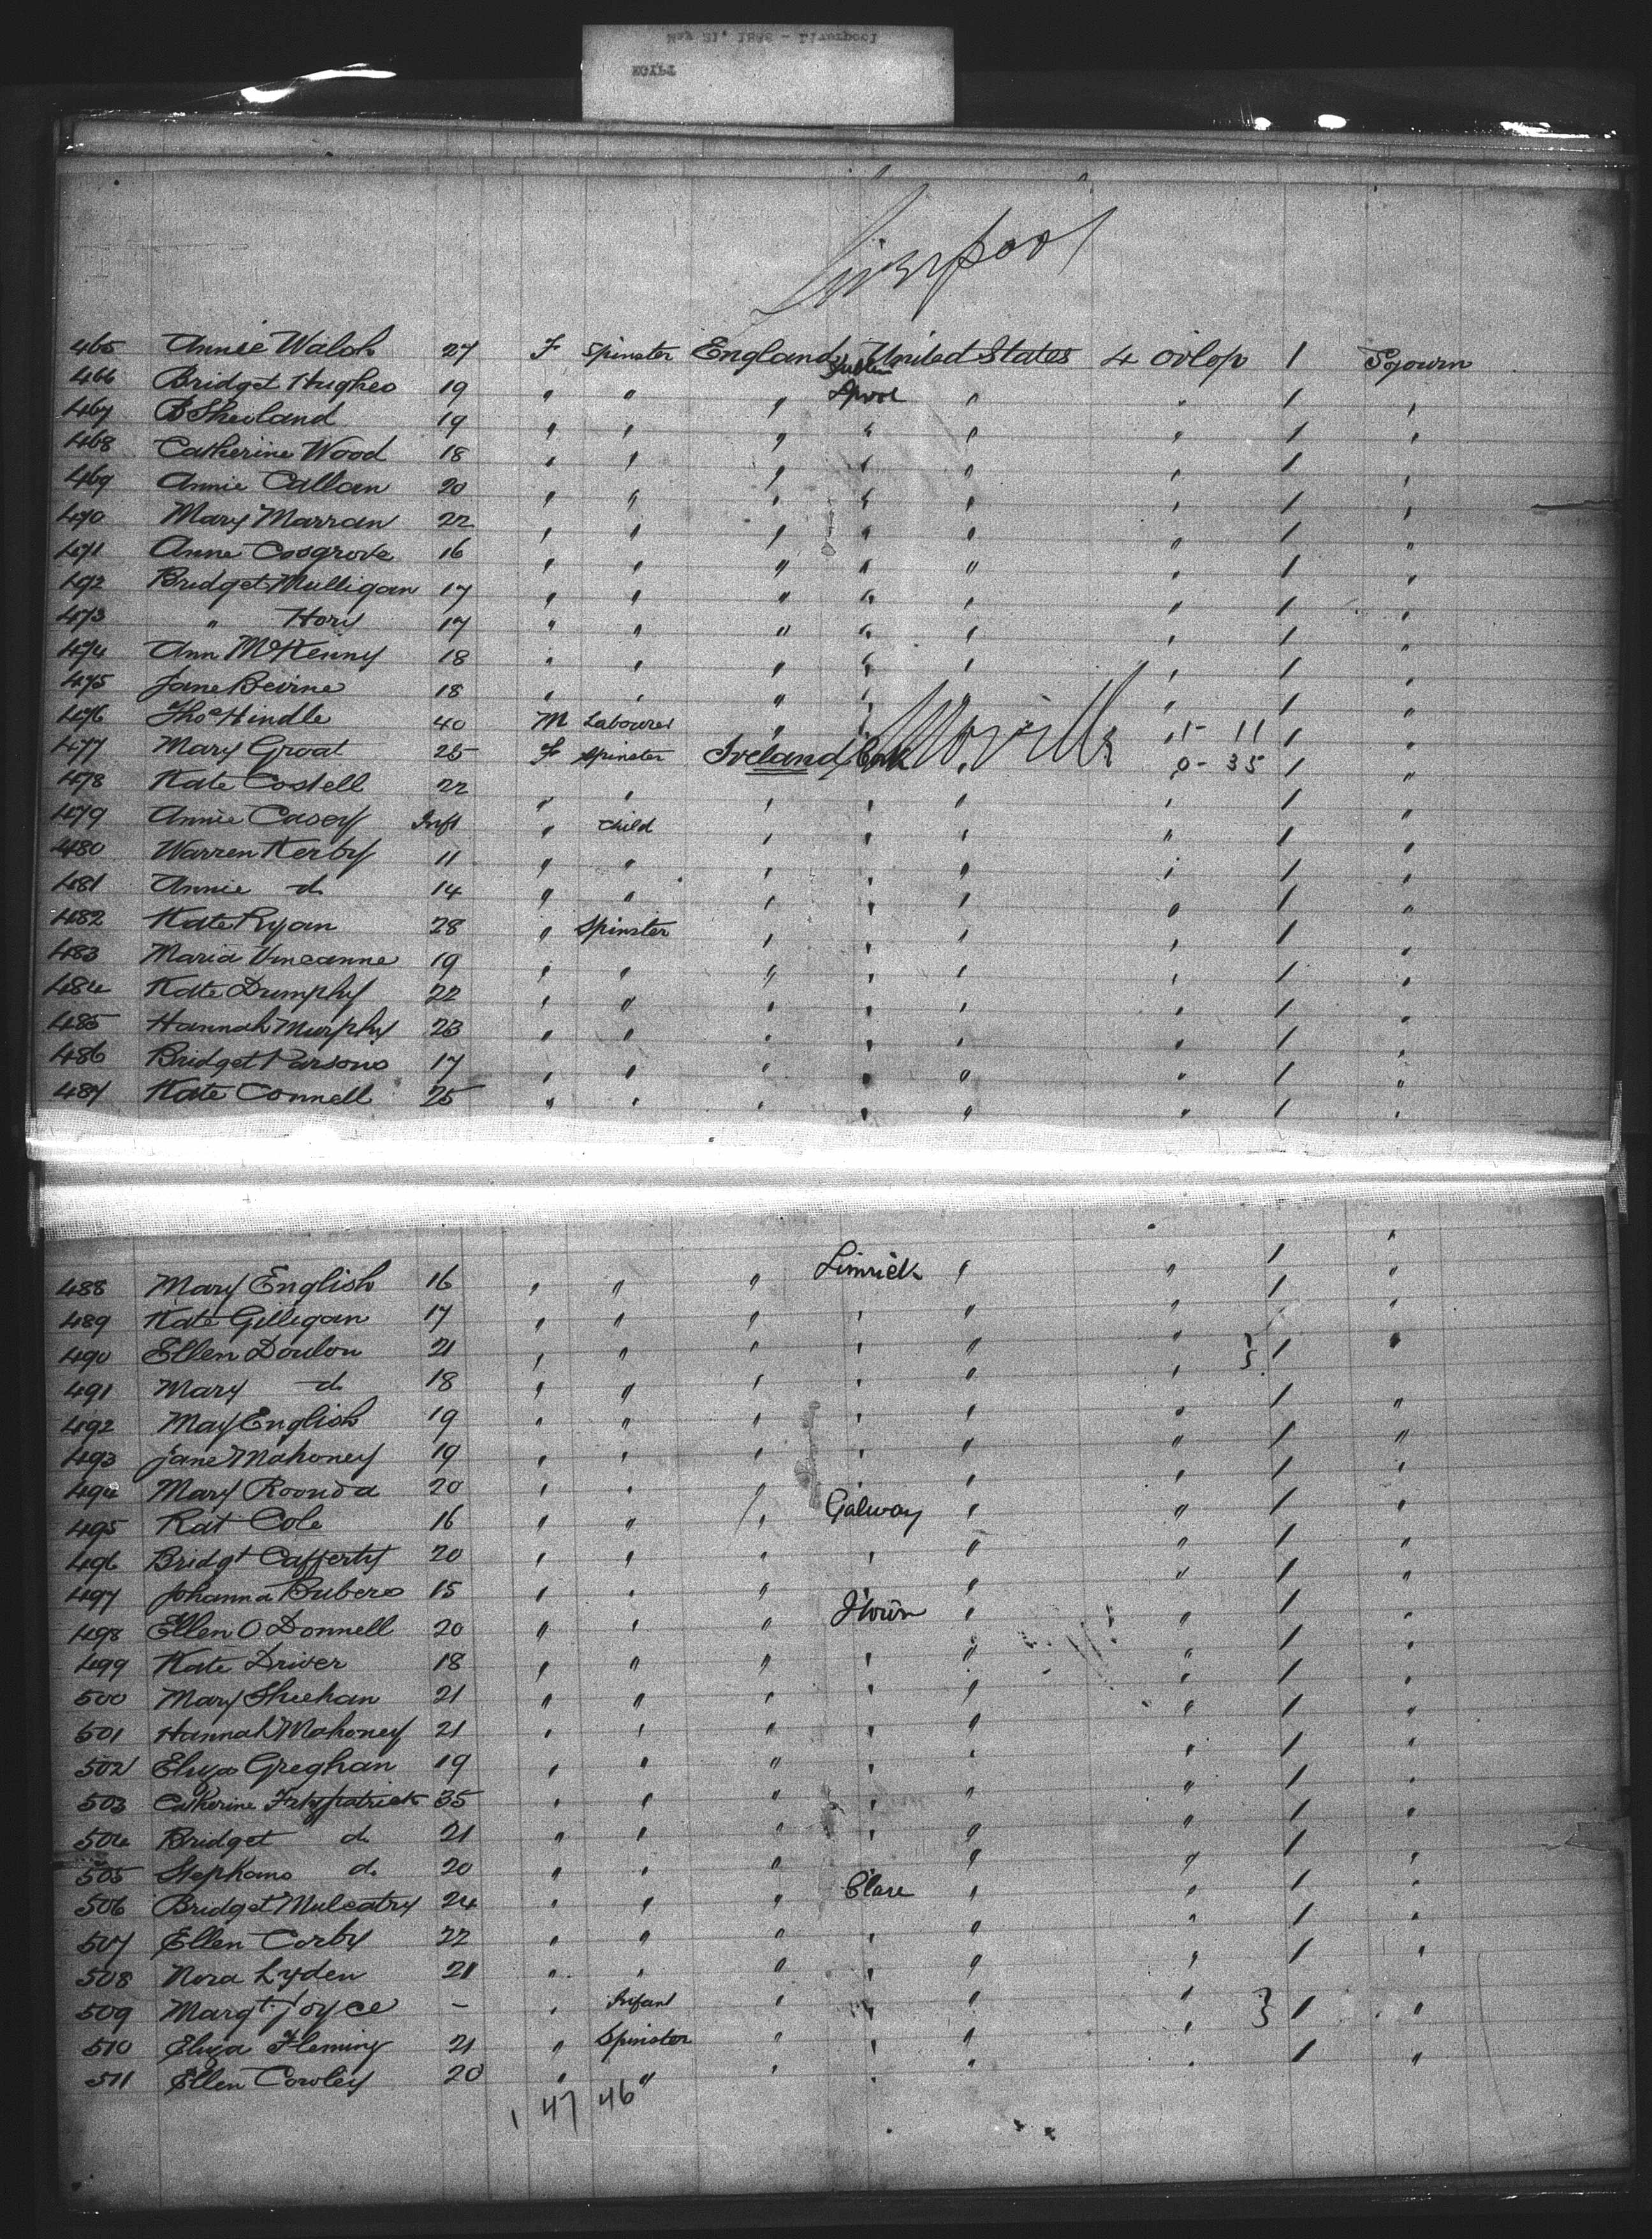 May 21, 1888 - Liverpool
EGYPT
Liverpool
465 Annie Walsh 27 F Spinster England Dublin United States 4 ovlop 1 Sojourn
466 Bridget Hughes 19 " " " Lpool " " 1 "
467 B Sheoland 19 " " " " " " 1 "
468 Catherine Wood 18 " " " " " " 1 "
469 Annie Callan 20 " " " " " " 1 "
470 Mary Marran 22 " " " " " " 1 "
471 Anne Cosgrove 16 " " " " " " 1 "
472 Bridget Mulligan 17 " " " " " " 1 "
473 " Hory 17 " " " " " " 1 "
474 Ann McKenny 18 " " " " " " 1 "
475 Jane Bevine 18 " " " " " " 1 "
476 Thos Hindle 40 M Labourer " " " 1 - 11 1 "
477 Mary Groat 25 F Spinster Ireland Cork Moville " 0 - 35 1 "
478 Kate Costell 22 " " " " " " 1 "
479 Annie Casey Inft " Child " " " " 1 "
480 Warren Kerby 11 " " " " " " 1 "
481 Annie d. 14 " " " " " " 1 "
482 Kate Ryan 28 " Spinster " " " " 1 "
483 Maria Vincanne 19 " " " " " " 1 "
484 Kate Dumphy 22 " " " " " " 1 "
485 Hannah Murphy 23 " " " " " " 1 "
486 Bridget Parsons 17 " " " " " " 1 "
487 Kate Connell 25 " " " " " " 1 "
488 Mary English 16 " " " Limrick " " 1 "
489 Kate Gilligan 17 " " " " " " 1 "
490 Ellen Doulon 21 " " " " " " } 1 "
491 Mary d. 18 " " " " " "
492 May English 19 " " " " " " 1 "
493 Jane Mahoney 19 " " " " " " 1 "
494 Mary Roonda 20 " " " " " " 1 "
495 Kat Cole 16 " " " Galway " " 1 "
496 Bridgt Cafferty 20 " " " " " " 1 "
497 Johanna Bubero 15 " " " " " " 1 "
498 Ellen O Donnell 20 " " " Qtown " " 1 "
499 Kate Driver 18 " " " " " " 1 "
500 Mary Sheehan 21 " " " " " " 1 "
501 Hannah Mahoney 21 " " " " " " 1 "
502 Eliza Greghan 19 " " " " " " 1 "
503 Catherine Fitzpatrick 35 " " " " " " 1 "
504 Bridget d. 21 " " " " " " 1 "
505 Stephano d. 20 " " " " " " 1 "
506 Bridget Mulcatry 24 " " " Clare " " 1 "
507 Ellen Corby 22 " " " " " " 1 "
508 Nora Lyden 21 " " " " " " 1 "
509 Margt Joyce - " Infant " " " " } 1 "
510 Eliza Fleming 21 " Spinster " " " "
511 Ellen Cowley 20 " " " " " " 1 "
1 47 46